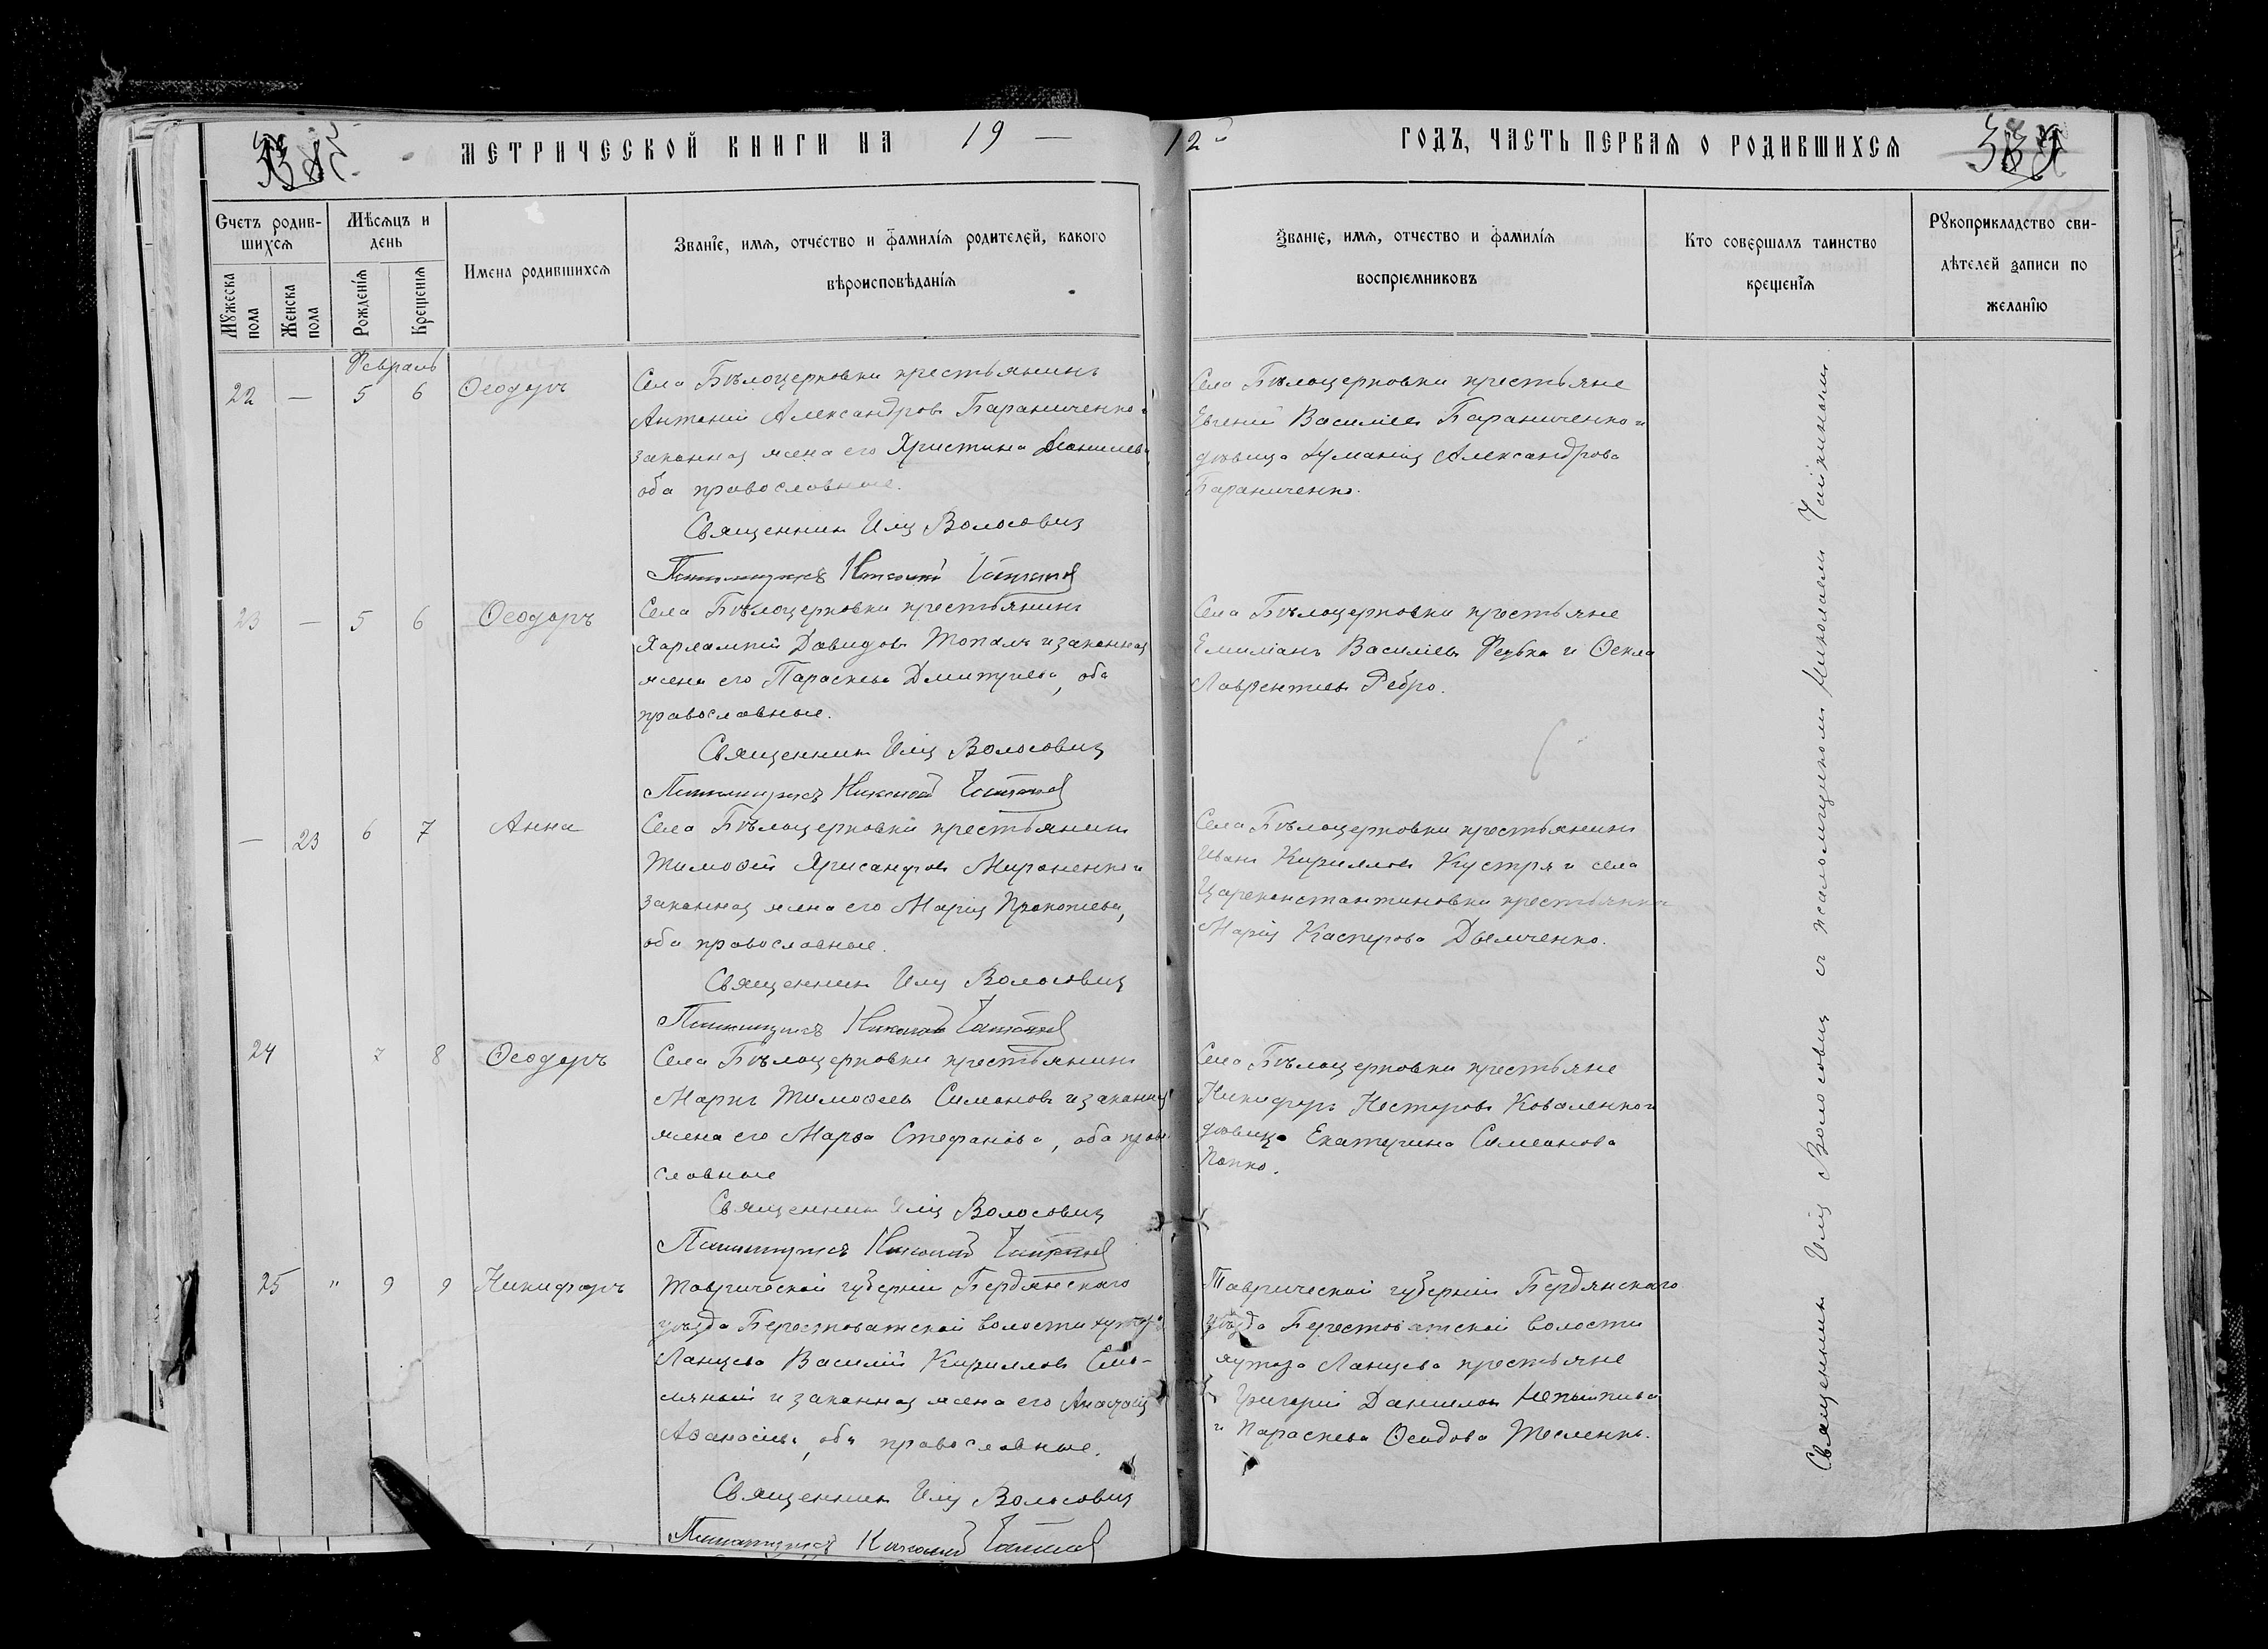 МЕТРИЧЕСКОЙ КНИГИ НА 19 — 12 ГОДЪ, ЧАСТЬ ПЕРВАЯ О РОДИВШИХСЯ
Счетъ родив-
шихся
Мужеска пола
Женска пола
Мѣсяцъ и
день
Рожденія
Крещенія
Имена родившихся
Званіе, имя, отчество и фамилія родителей, какого
вѣроисповѣданія
Званіе, имя, отчество и фамилія
воспріемниковъ
Кто совершалъ таинство
крещенія
Рукоприкладство сви-
дѣтелей записи по
желанію
Февраль
22 — 5 6 Ѳеодоръ
Села Бѣлоцерковки крестьянинъ
Антоній Александровъ Бараниченко и
законная жена его Христина Даниилева
оба православные.
Священникъ Илія Волосовичъ
Псаломщикъ Николай
Села Бѣлоцерковки крестьяне
Евгеній Василіевъ Бараниченко и
дѣвица Александрова
Бараниченко.
23 — 5 6 Ѳеодоръ
Села Бѣлоцерковки крестьянинъ
Харлампій Давидовъ Топалъ и законная
жена его Параскева Димитріева, оба
православные.
Священникъ Илія Волосовичъ
Псаломщикъ Николай
Села Бѣлоцерковки крестьяне
Емиліанъ Василіевъ и Ѳекла
Лаврентіева Ребро.
— 23 6 7 Анна
Села Бѣлоцерковки крестьянинъ
Тимоѳей Хрисанфовъ Мироненко и
законная жена его Марія Прокопіева,
оба православные.
Священникъ Илія Волосовичъ
Псаломщикъ Николай
Села Бѣлоцерковки крестьянинъ
Иванъ Кирилловъ Кустря и села
Цареконстантиновки крестьянка
Марія Касперова Дымченко.
24 7 8 Ѳеодоръ
Села Бѣлоцерковки крестьянинъ
Маркъ Тимоѳеевъ Симоновъ и законная
жена его Марѳа Стефанова, оба право-
славные
Священникъ Илія Волосовичъ
Псаломщикъ Николай
Села Бѣлоцерковки крестьяне
Никифоръ Несторовъ Коваленко и
дѣвица Екатерина Симеонова
Попко.
25 " 9 9 Никифоръ
Таврической губерніи Бердянскаго
уѣзда Берестоватской волости хутора
Ланцева Василій Кирилловъ Смо-
ляный и законная жена его
Аѳанасіева, оба православные.
Священникъ Илія Волосовичъ
Псаломщикъ Николай
Таврической губерніи Бердянскаго
уѣзда Берестоватской волости
хутора Ланцева крестьяне
Григорій Данииловъ Непыйпиво
и Параскева Тесленко.
Священникъ Илія Волосовичъ съ псаломщикомъ Николаемъ